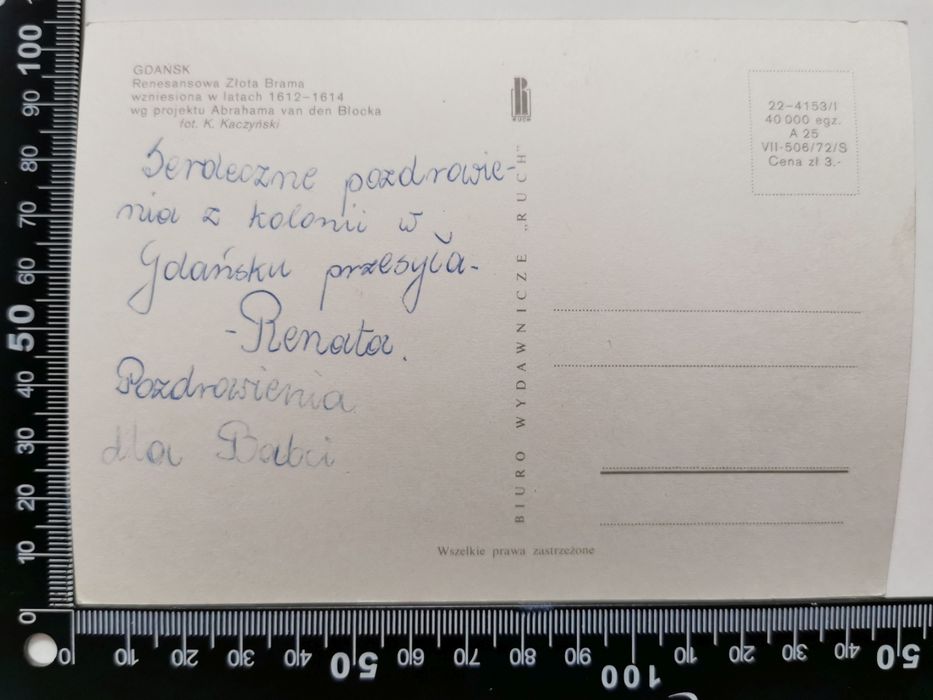 GDAŃSK
Renesansowa Złota Brama
wzniesiona w latach 1612–1614
wg projektu Abrahama van den Błocka
fot. K. Kaczyński
Serdeczne pozdrowie-
nia z kolonii w
Gdańsku przesyła-
-Renata.
Pozdrowienia
dla Babci
RUCH
BIURO WYDAWNICZE „RUCH"
22–4153/I
40 000 egz.
A 25
VII-506/72/S
Cena zł 3.-
Wszelkie prawa zastrzeżone
100
90
80
70
60
50
40
30
20
10
0
0 10 20 30 40 50 60 70 80 90 100 10 20 30 40 50